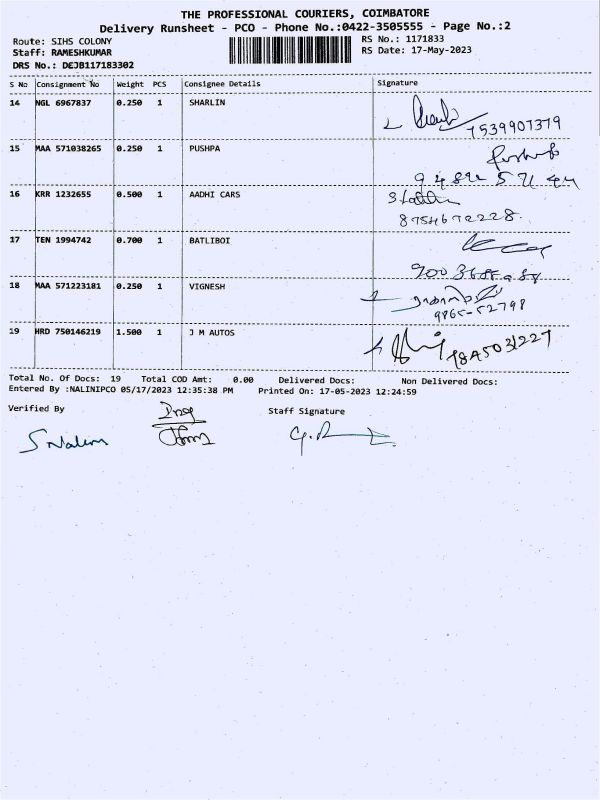 THE PROFESSIONAL COURIERS, COIMBATORE
Delivery Runsheet - PCO - Phone No.:0422-3505555 - Page No.:2
Route: SIHS COLONY
RS No.: 1171833
Staff: RAMESHKUMAR
RS Date: 17-May-2023
DRS No.: DEJB117183302
S No Consignment No Weight PCS Consignee Details Signature
14 NGL 6967837 0.250 1 SHARLIN
7539907379
15 MAA 571038265 0.250 1 PUSHPA
16 KRR 1232655 0.500 1 AADHI CARS
8754672228
17 TEN 1994742 0.700 1 BATLIBOI
18 MAA 571223181 0.250 1 VIGNESH
9865-52798
19 HRD 750146219 1.500 1 J M AUTOS
Total No. Of Docs: 19 Total COD Amt: 0.00 Delivered Docs: Non Delivered Docs:
Entered By :NALINIPCO 05/17/2023 12:35:38 PM Printed On: 17-05-2023 12:24:59
Verified By Staff Signature
S Nalini